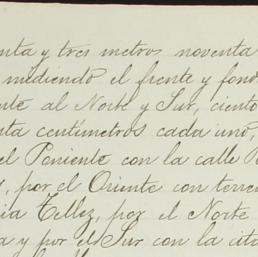 nta y tres metros noventa
midiendo el frente y fond
nte al Norte y Sur, ciento
ta centímetros cada uno,
el Poniente con la calle
por el Oriente con terre
ia Tellez, por el Norte
a y por el Sur con la cita